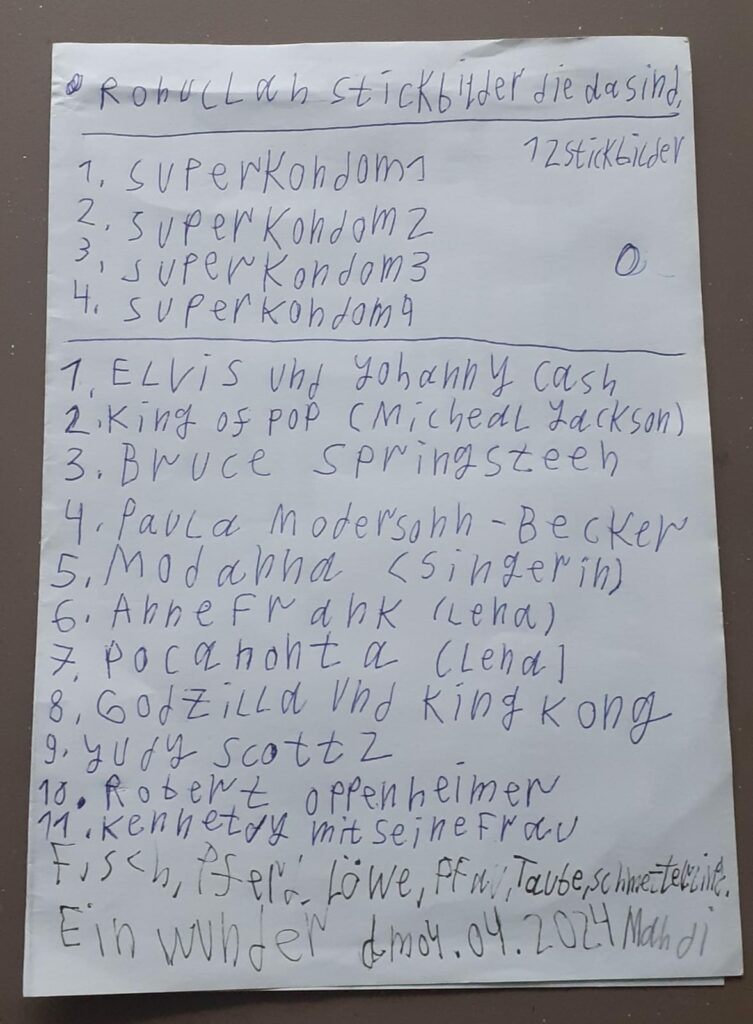 Rohullah Stickbilder die da sind.
12 Stickbilder
1. Superkondom 1
2. Superkondom 2
3. Superkondom 3
4. Superkondom 4
1. ELVIS und Johanny Cash
2. King of POP (Micheal Jackson)
3. Bruce Springsteen
4. Paula Modersohn-Becker
5. Modanna (Singerin)
6. Anne Frank (Lena)
7. Pocanonta (Lena)
8. Godzilla und King Kong
9. Yudy Scott 2
10. Robert Oppenheimer
11. Kennetdy mit seine Frau
Fisch, Pferd. Löwe, Pfau, Taube,
Ein wunder dm 04.04.2024 Mahdi